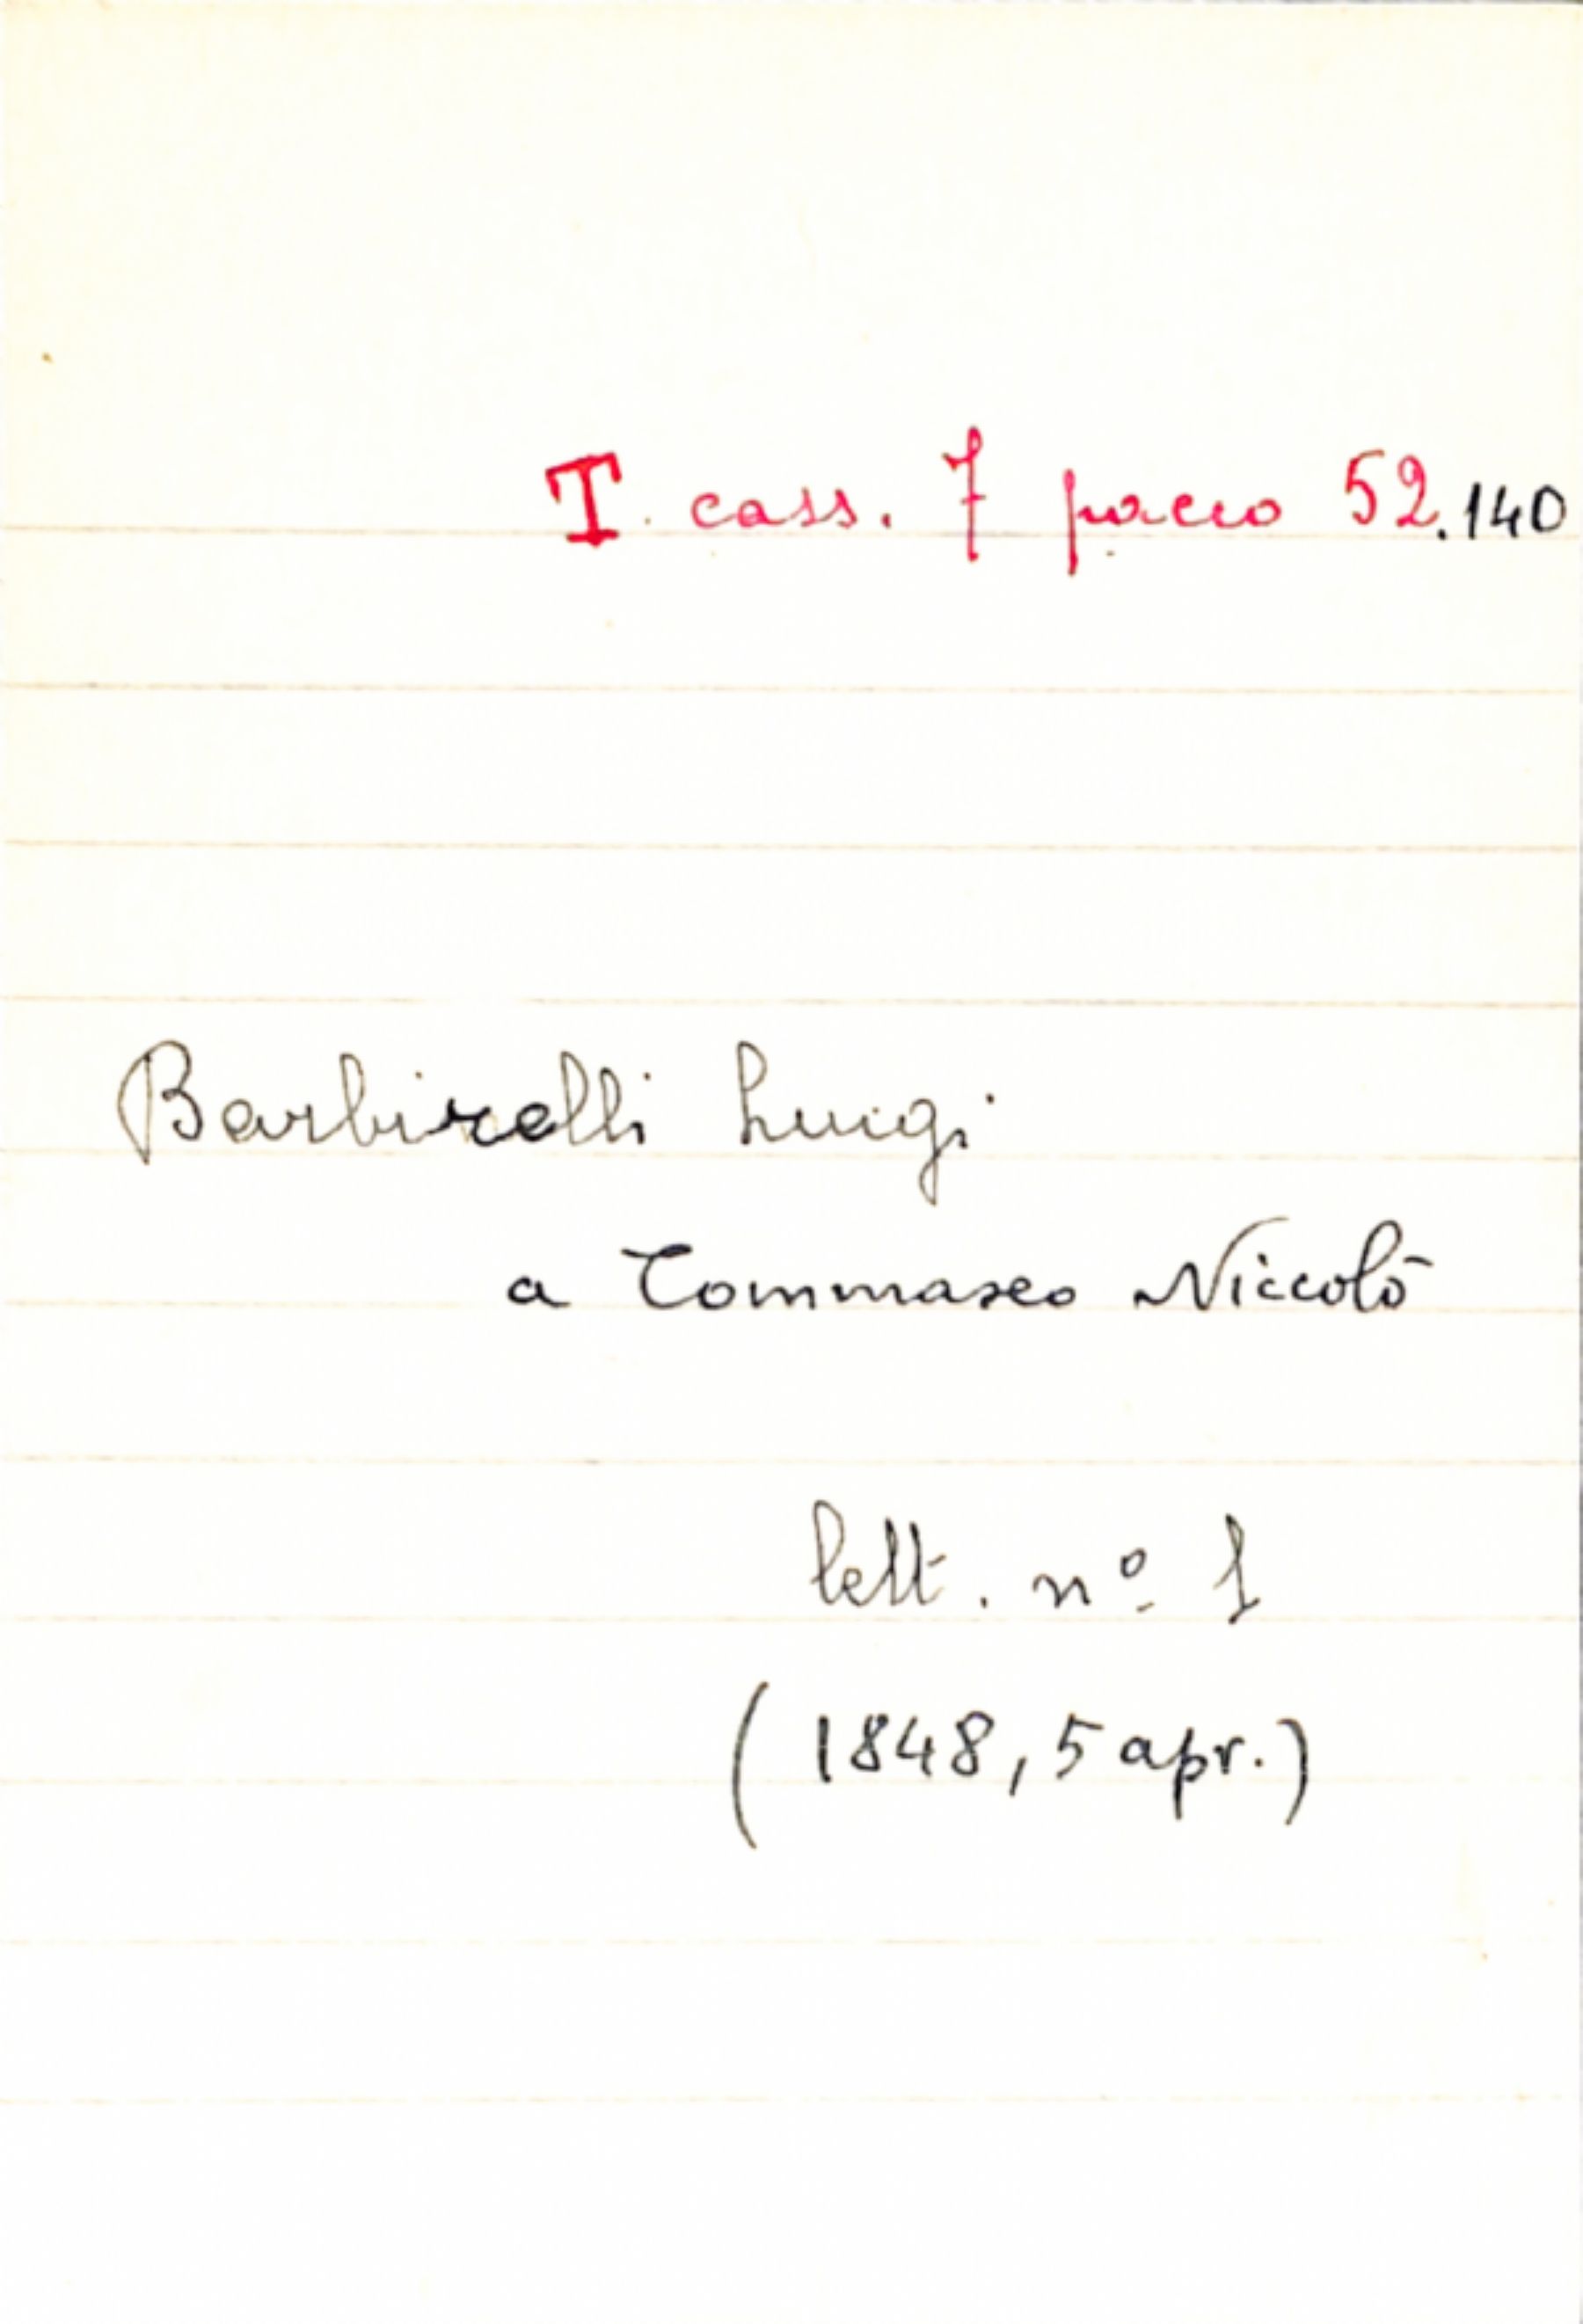 T. cass. 7 pacco 52.140
Barbirelli Luigi
a Tommaseo Niccolò
lett. nº 1
(1848, 5 apr.)